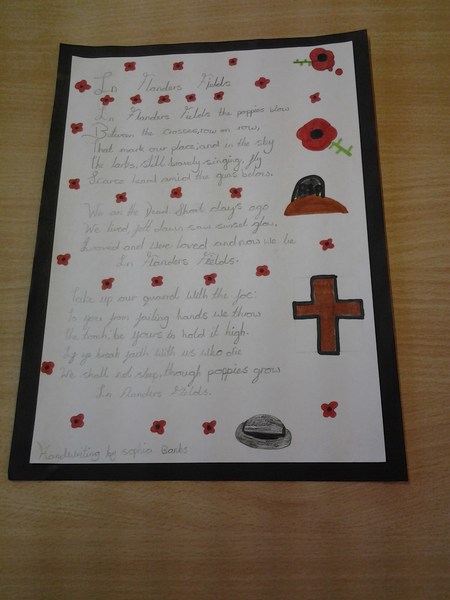 In Flanders Fields
In Flanders Fields the poppies blow
Between the crosses, row on row,
That mark our place; and in the sky
The larks, still bravely singing, fly
Scarce heard amid the guns below.
We are the Dead. Short days ago
We lived, felt dawn, saw sunset glow,
Loved and were loved and now we lie
In Flanders Fields.
Take up our quarrel with the foe:
To you from failing hands we throw
The torch; be yours to hold it high.
If ye break faith with us who die
We shall not sleep, though poppies grow
In Flanders Fields.
Handwriting by Sophia Banks